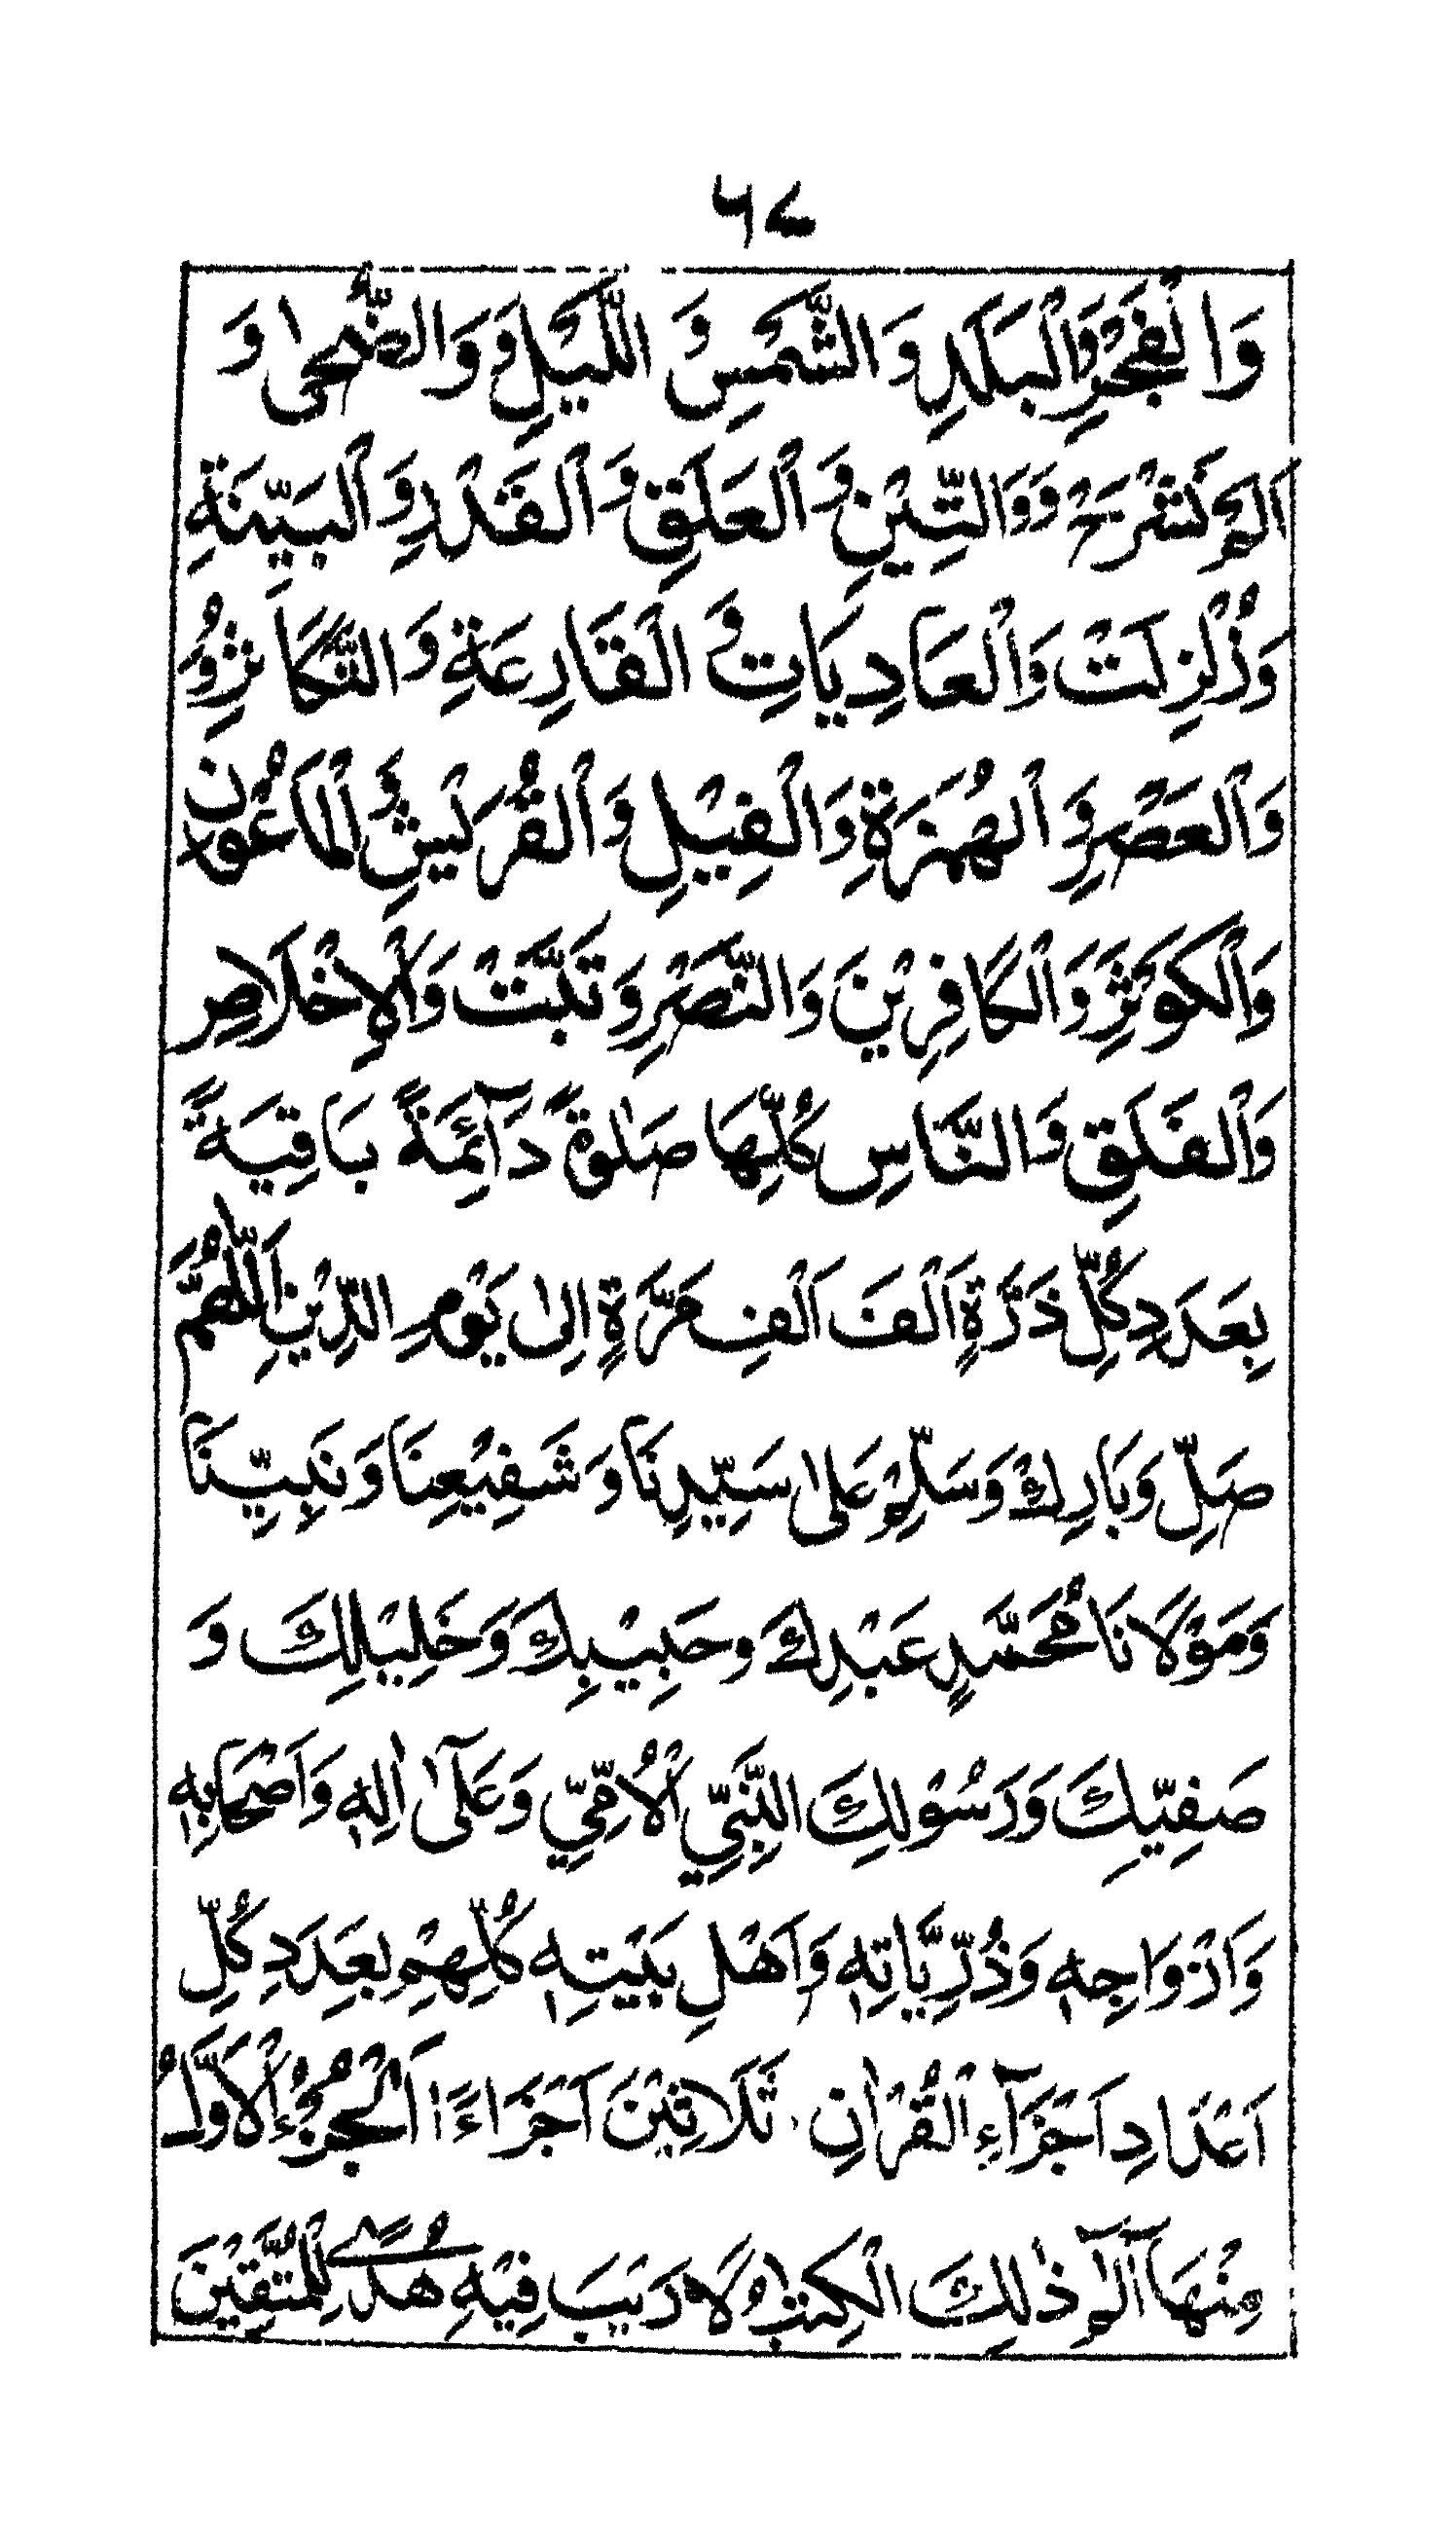 ٦٧
وَالْفَجْرِ وَالْبَلَدِ وَالشَّمْسِ وَاللَّيْلِ وَالضُّحٰى وَ
اَلَمْ نَشْرَحْ وَوَالتِّيْنِ وَالْعَلَقِ وَالْقَدْرِ وَالْبَيِّنَةِ
وَزُلْزِلَتْ وَالْعَادِيَاتِ وَالْقَارِعَةِ وَالتَّكَاثُرِ وَ
وَالْعَصْرِ وَالْهُمَزَةِ وَالْفِيْلِ وَالْقُرَيْشِ وَالْمَاعُوْنَ
وَالْكَوْثَرِ وَالْكَافِرِيْنَ وَالنَّصْرِ وَتَبَّتْ وَالْاِخْلَاصِ
وَالْفَلَقِ وَالنَّاسِ كُلِّهَا صَلٰوةً دَآئِمَةً بَاقِيَةً
بِعَدَدِ كُلِّ ذَرَّةٍ اَلْفَ اَلْفِ مَرَّةٍ اِلٰى يَوْمِ الدِّيْنِ اَللّٰهُمَّ
صَلِّ وَبَارِكْ وَسَلِّمْ عَلٰى سَيِّدِنَا وَشَفِيْعِنَا وَنَبِيِّنَا
وَمَوْلَانَا مُحَمَّدٍ عَبْدِكَ وحَبِيْبِكَ وَخَلِيْلِكَ وَ
صَفِيِّكَ وَرَسُوْلِكَ النَّبِيِّ الْاُمِّيِّ وَعَلٰٓى اٰلِهٖ وَاَصْحَابِهٖ
وَاَزْوَاجِهٖ وَذُرِّيَّاتِهٖ وَاَهْلِ بَيْتِهٖ كُلِّهِمْ بِعَدَدِ كُلِّ
اَعْدَادِ اَجْزَآءِ الْقُرْاٰنِ ثَلَاثِيْنَ اَجْزَاءً ا اَلْجُزْءُ الْاَوَّلُ
مِنْهَا آلٓمٓ ذٰلِكَ الْكِتٰبُ لَا رَيْبَ فِيْهِ هُدًى لِّلْمُتَّقِيْنَ